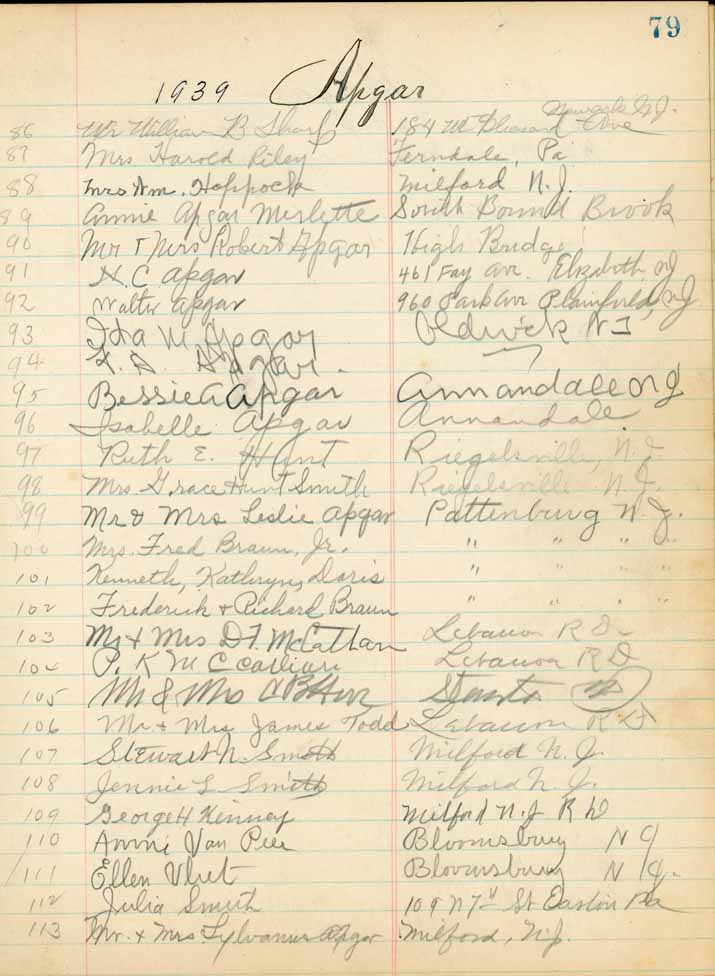 79
1939 Apgar
Newark N.J.
86 Mr William B Sharp 184 Mt Pleasant Ave
87 Mrs. Harold Riley Ferndale, Pa
88 Mrs Wm. Hoppock Milford N.J.
89 Annie Apgar Merlette South Bound Brook
90 Mr & Mrs Robert Apgar High Bridge
91 H. C Apgar 461 Fay Ave. Elizabeth NJ
92 Walter Apgar 960 Park Ave Plainfield, NJ
93 Ida M Apgar Oldwick N J
94 Apgar.
95 Bessie A Apgar Annandale N J
96 Isabelle Apgar Annandale
97 Ruth E. Hunt Riegelsville, N.J.
98 Mrs. Grace Hunt Smith Riegelsville N.J.
99 Mr & Mrs Leslie Apgar Pattenburg N.J.
100 Mrs. Fred Braun, Jr. " " " "
101 Kenneth, Kathryn, Doris " " " "
102 Frederick & Richard Braun " " " "
103 Mr & Mrs D. F. McCathern Lebanon R D
104 P. K Lebanon R D
105 Mr & Mrs
106 Mr. & Mrs James Todd Lebanon R D
107 Stewart N. Smith Milford N. J.
108 Jennie L Smith Milford N. J.
109 George H Kinney Milford N.J R D
110 Annie Van Pelt Bloomsbury N J
111 Ellen Vliet Bloomsbury N J.
112 Julia Smith 109 N 7th St Easton Pa
113 Mr. & Mrs. Sylvanus Apgar Milford, N.J.